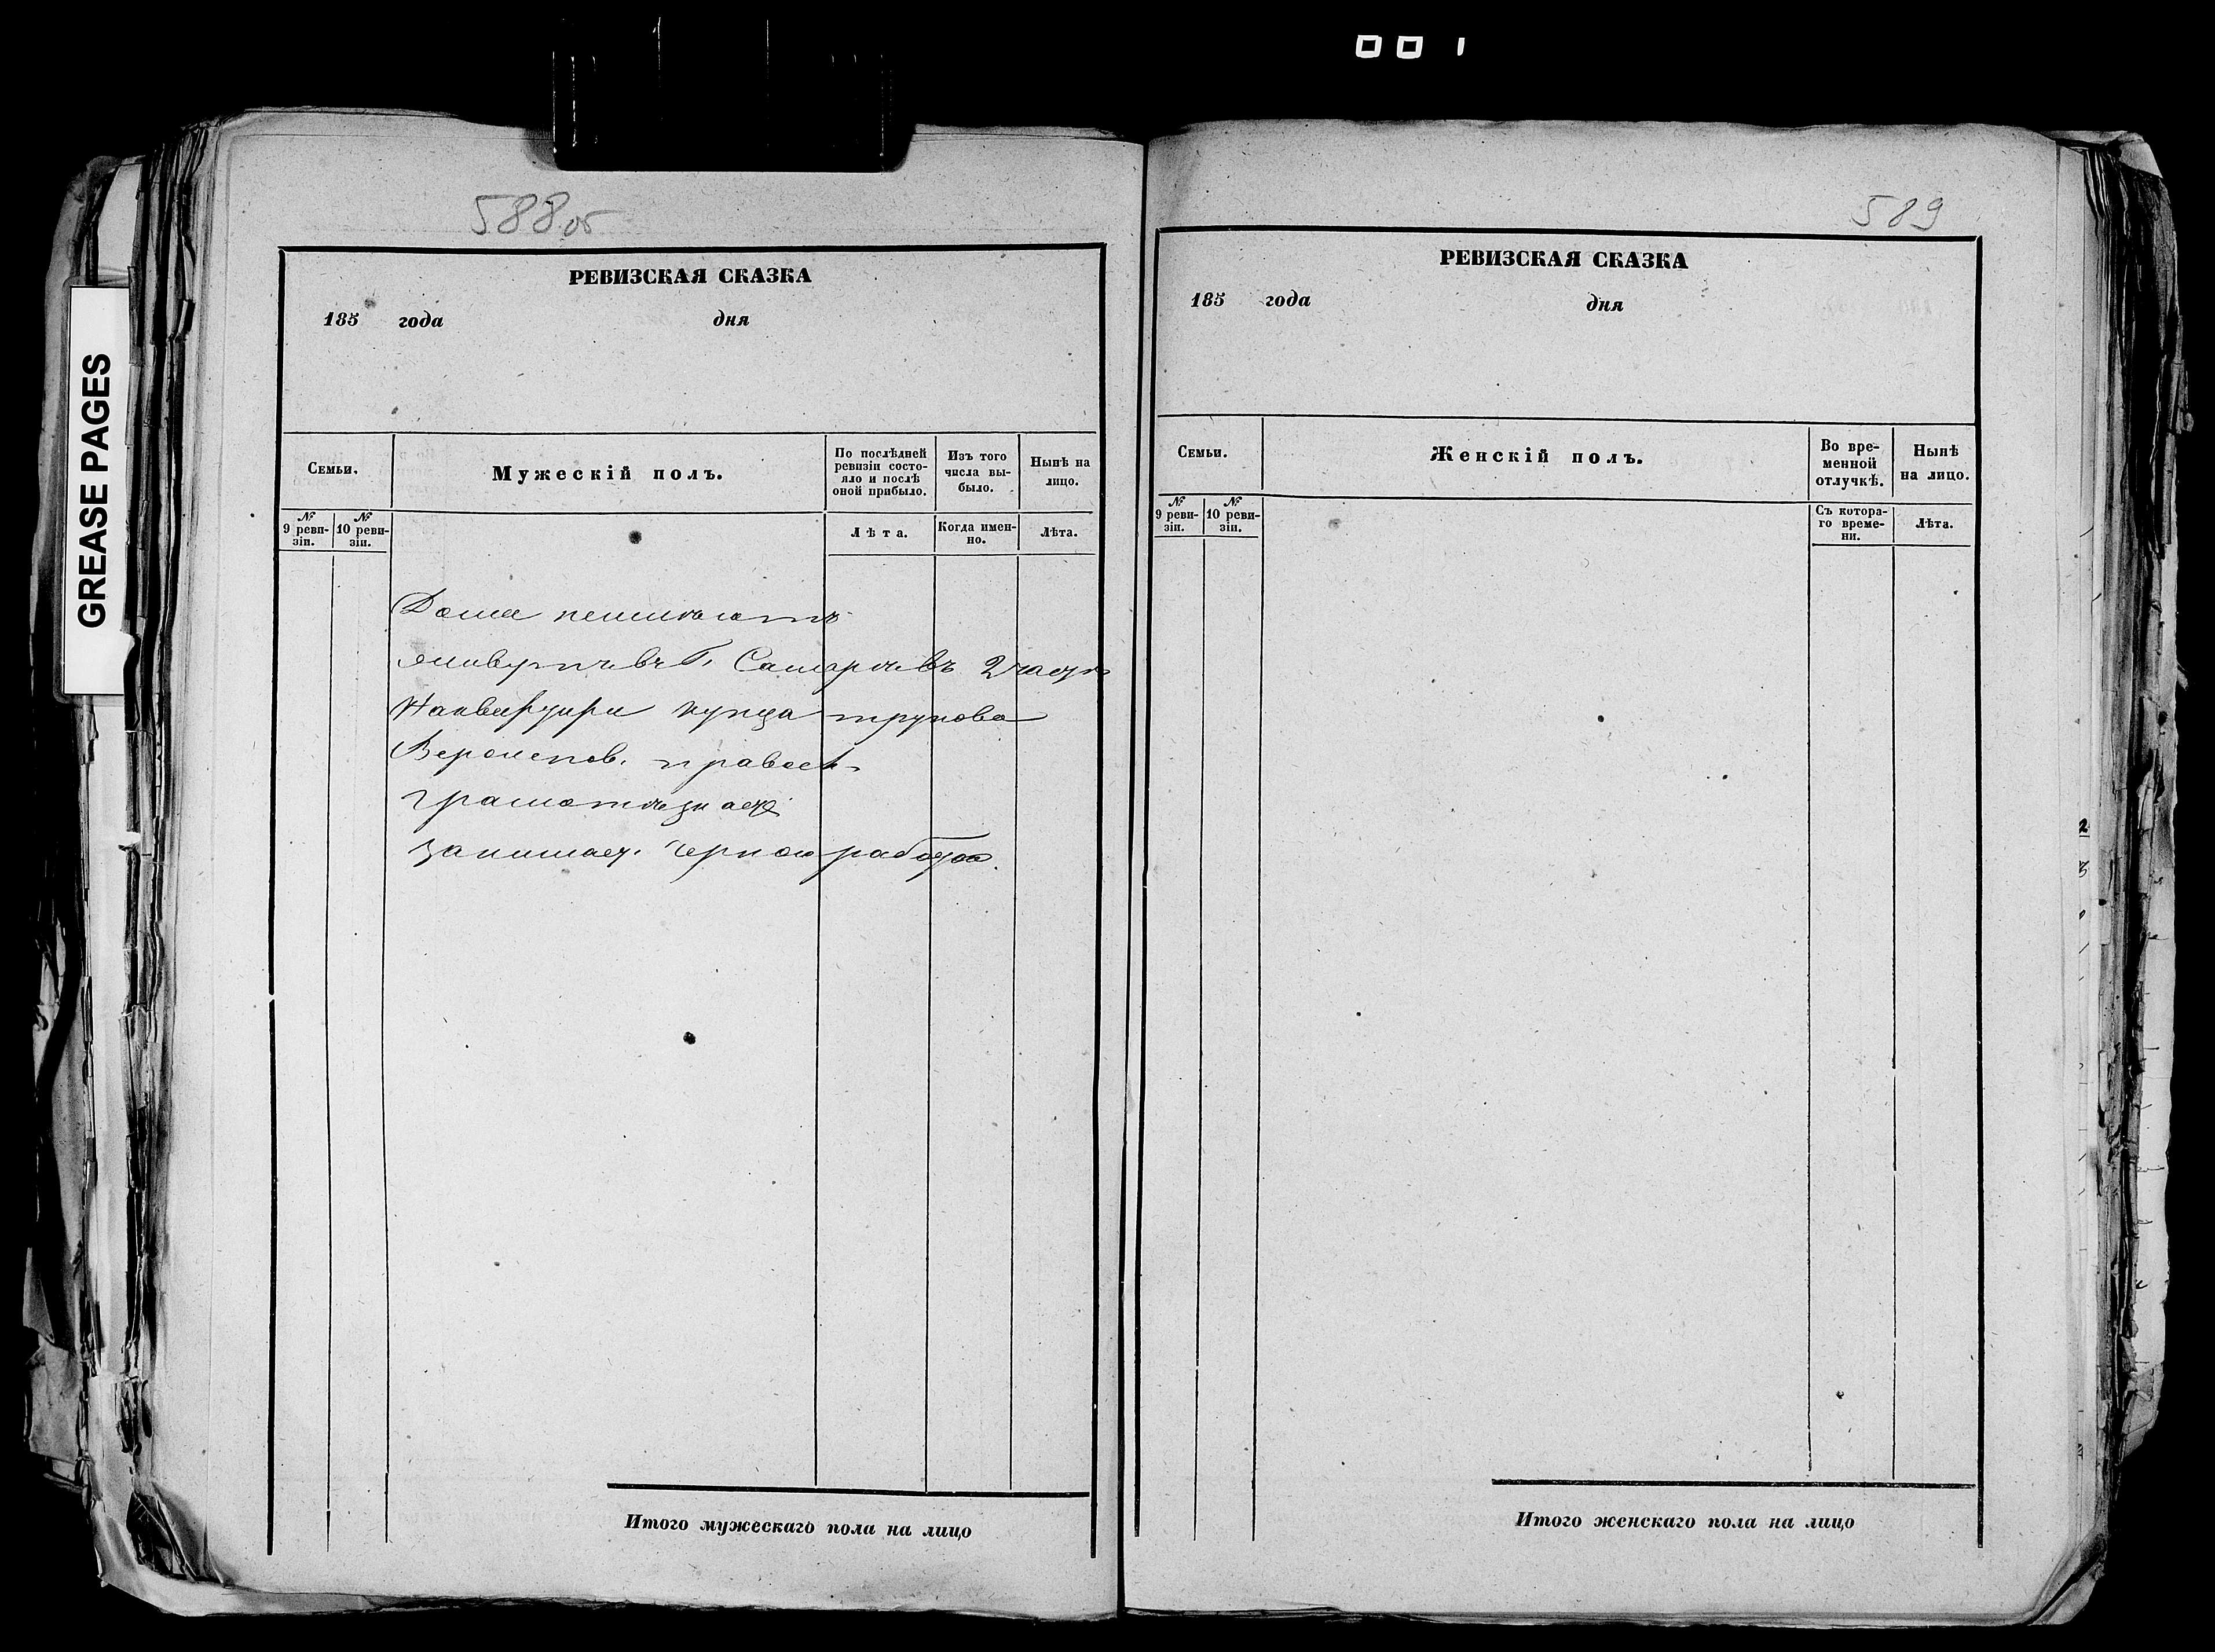 001
GREASE PAGES
588 об
РЕВИЗСКАЯ СКАЗКА
185 года дня
Семьи.
Мужескій полъ.
По послѣдней ревизіи состо-
яло и послѣ оной прибыло.
Изъ того числа вы-
было.
Нынѣ на лицо.
№ 9 реви-
зіи.
№ 10 реви-
зіи.
Лѣта.
Когда имен-
но.
Лѣта.
Дома неимѣютъ
живутъ въ г. Самаре въ 2 част
Наквартире купца трунова
Вероиспов. правосл.
грамоте знает
занимает. черною работою.
Итого мужескаго пола на лицо
589
РЕВИЗСКАЯ СКАЗКА
185 года дня
Семьи.
Женскій полъ.
Во вре-
менной
отлучкѣ.
Нынѣ
на лицо.
№ 9 реви-
зіи.
№ 10 реви-
зіи.
Съ котора-
го време-
ни.
Лѣта.
Итого женскаго пола на лицо